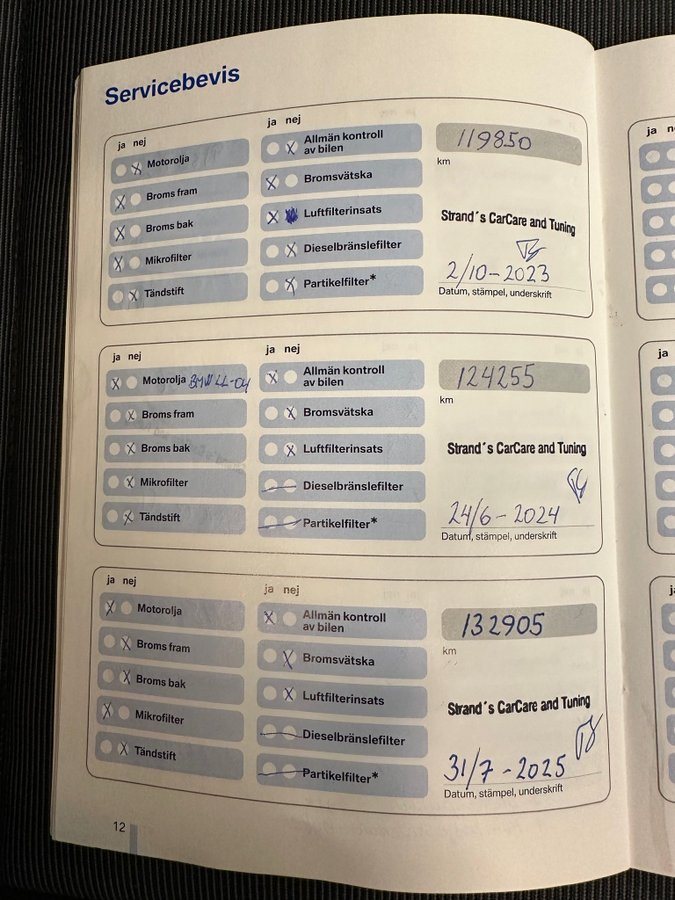 Servicebevis
ja nej
Motorolja
Broms fram
Broms bak
Mikrofilter
Tändstift
ja nej
Allmän kontroll
av bilen
Bromsvätska
Luftfilterinsats
Dieselbränslefilter
Partikelfilter*
119850
km
Strand´s CarCare and Tuning
2/10-2023
Datum, stämpel, underskrift
ja nej
Motorolja BMW LL-04
Broms fram
Broms bak
Mikrofilter
Tändstift
ja nej
Allmän kontroll
av bilen
Bromsvätska
Luftfilterinsats
Dieselbränslefilter
Partikelfilter*
124255
km
Strand´s CarCare and Tuning
24/6-2024
Datum, stämpel, underskrift
ja nej
Motorolja
Broms fram
Broms bak
Mikrofilter
Tändstift
ja nej
Allmän kontroll
av bilen
Bromsvätska
Luftfilterinsats
Dieselbränslefilter
Partikelfilter*
132905
km
Strand´s CarCare and Tuning
31/7-2025
Datum, stämpel, underskrift
12
ja n
ja